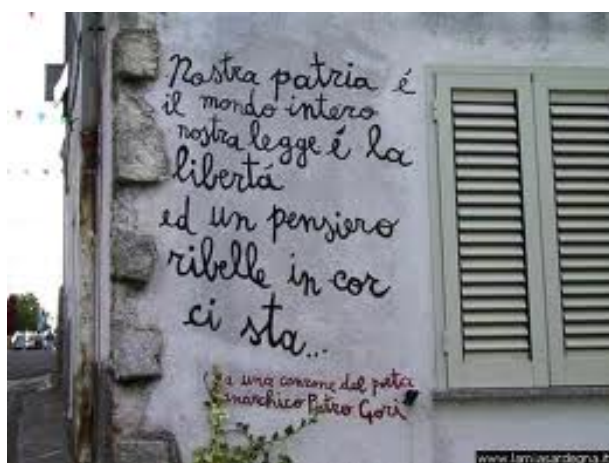 Nostra patria é
il mondo intero
nostra legge é la
libertá
ed un pensiero
ribelle in cor
ci sta...
una canzone del poeta
anarchico Pietro Gori
www.lamiasardegna.it